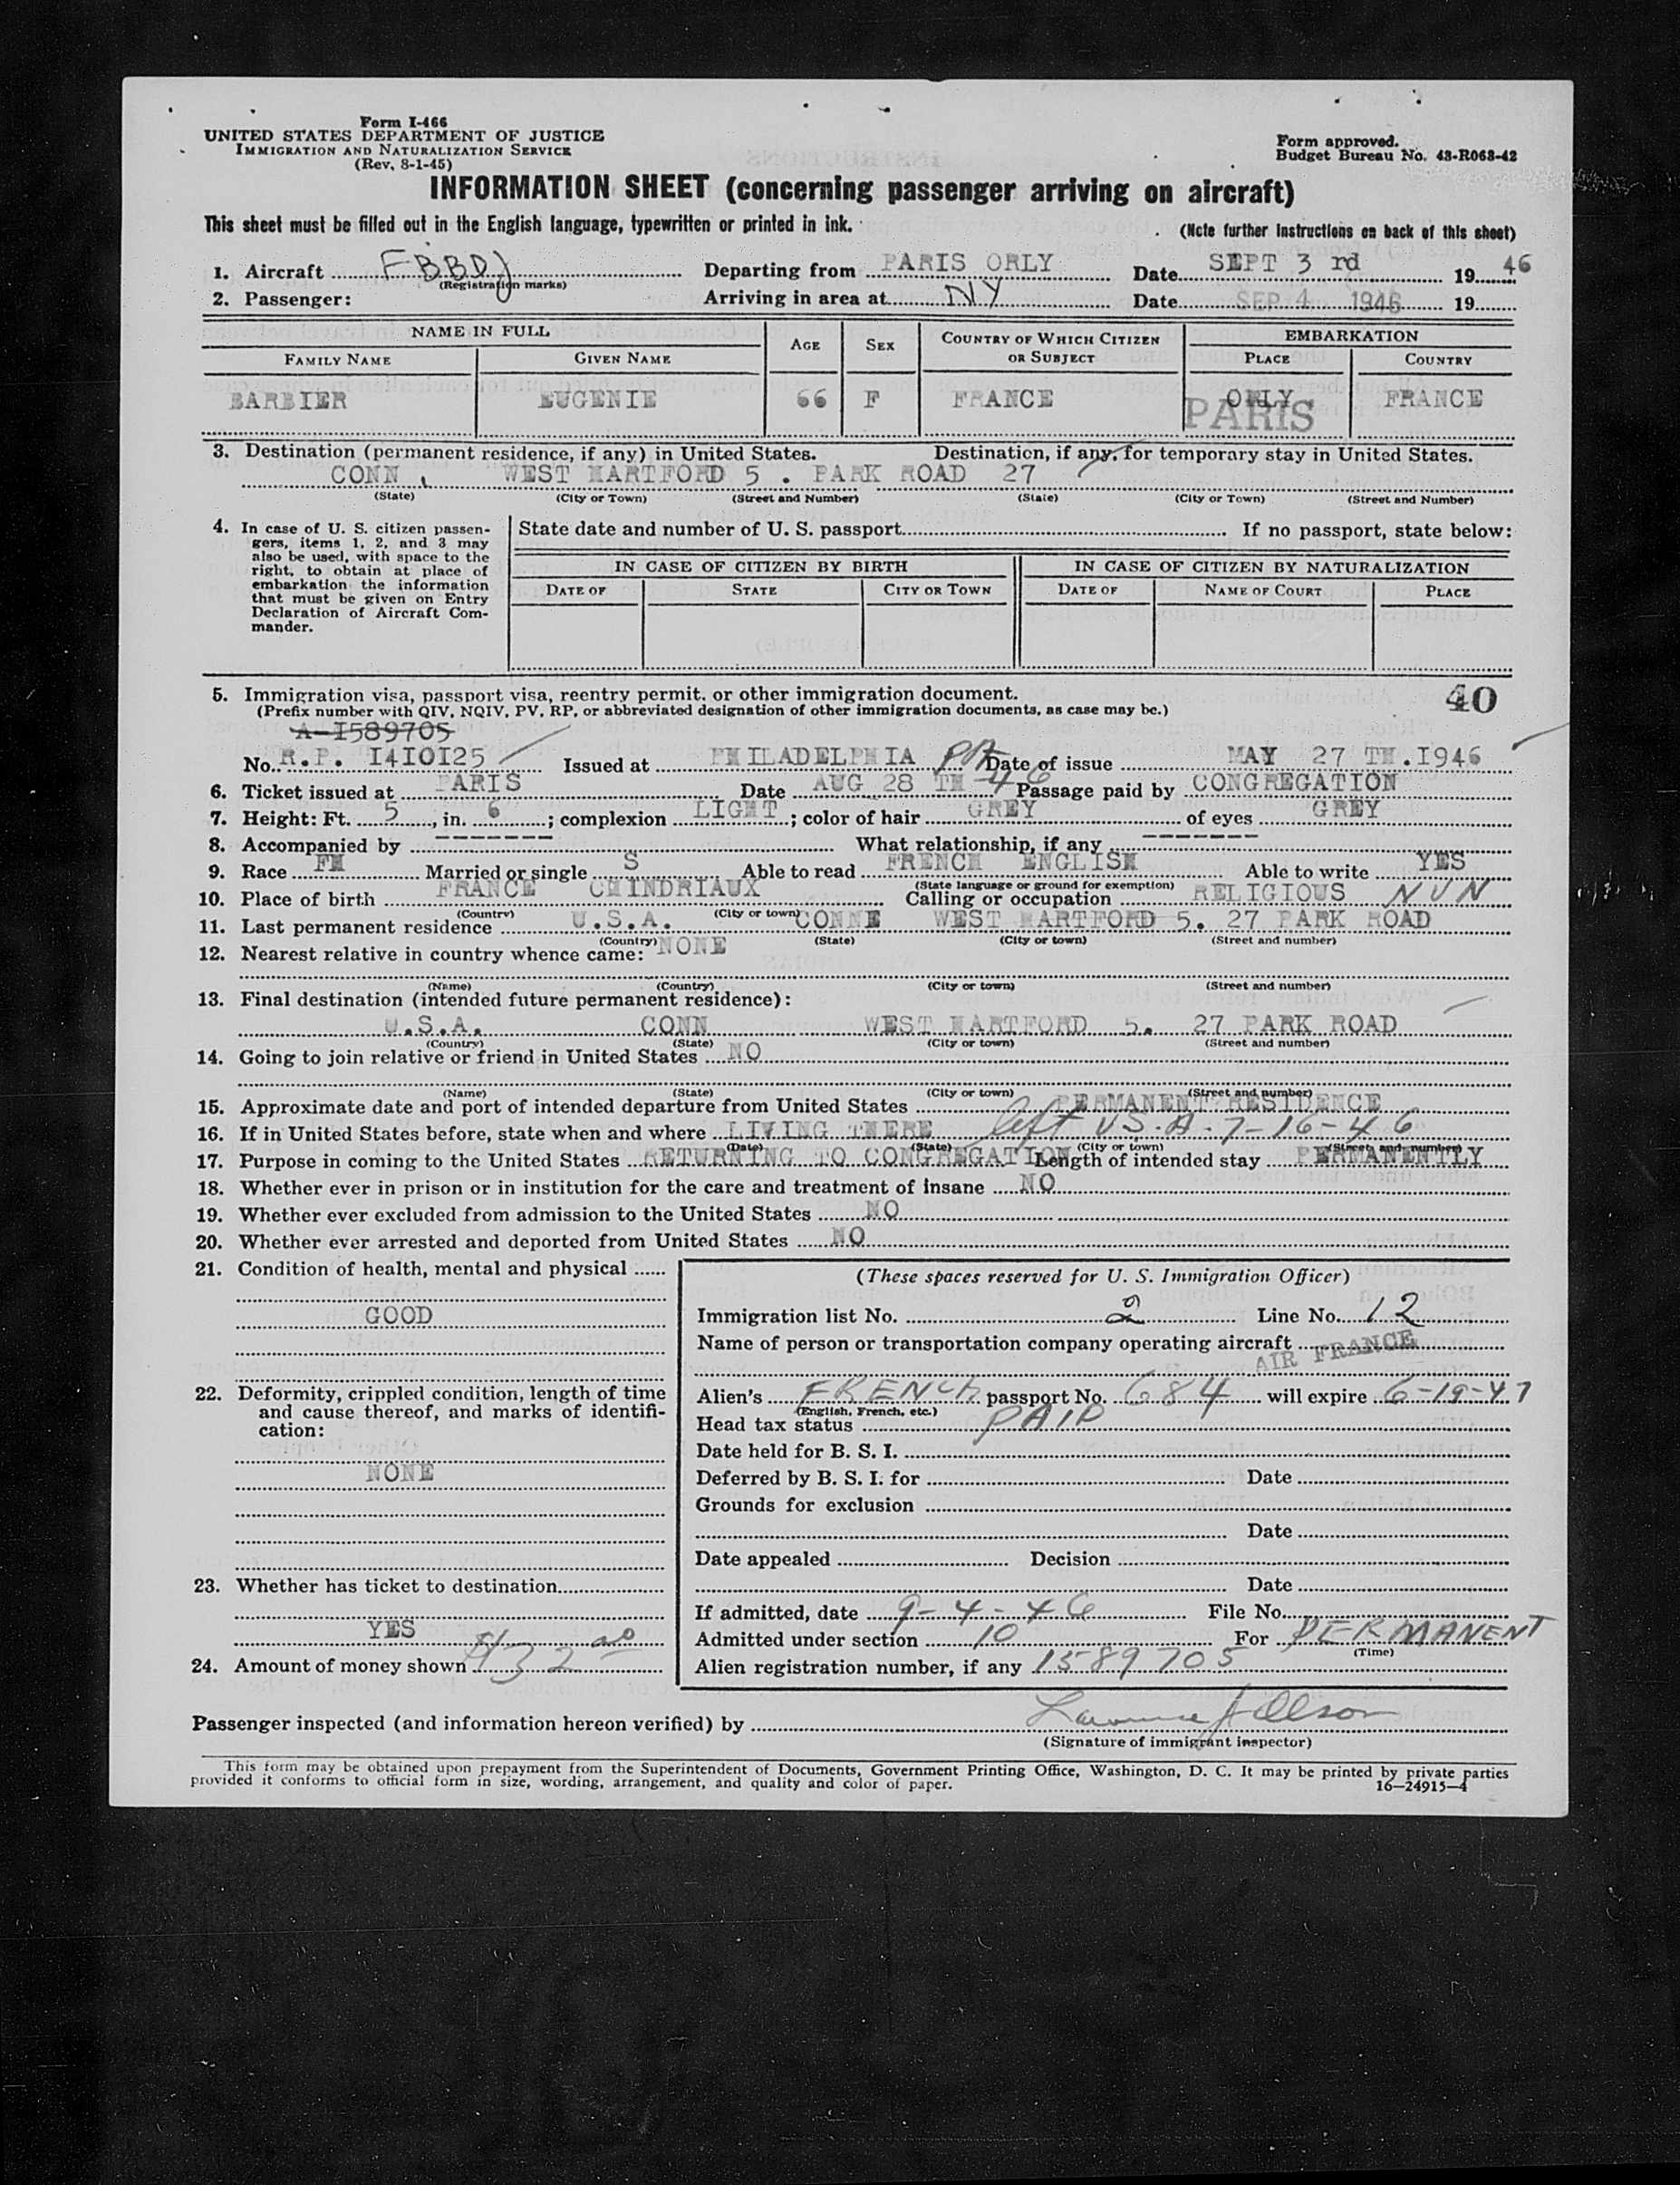 Form I-466
UNITED STATES DEPARTMENT OF JUSTICE
IMMIGRATION AND NATURALIZATION SERVICE
(Rev. 8-1-45)
Form approved.
Budget Bureau No. 43-R063-42
INFORMATION SHEET (concerning passenger arriving on aircraft)
This sheet must be filled out in the English language, typewritten or printed in ink.
(Note further instructions on back of this sheet)
1. Aircraft FBBDJ Departing from PARIS ORLY Date SEPT 3 rd 1946
(Registration marks)
2. Passenger: Arriving in area at NY Date SEP 4 1946 19
NAME IN FULL AGE SEX COUNTRY OF WHICH CITIZEN OR SUBJECT EMBARKATION
FAMILY NAME GIVEN NAME PLACE COUNTRY
BARBIER EUGENIE 66 F FRANCE ORLY FRANCE
PARIS
3. Destination (permanent residence, if any) in United States. Destination, if any, for temporary stay in United States.
CONN , WEST HARTFORD 5 . PARK ROAD 27
(State) (City or Town) (Street and Number) (State) (City or Town) (Street and Number)
4. In case of U. S. citizen passengers, items 1, 2, and 3 may also be used, with space to the right, to obtain at place of embarkation the information that must be given on Entry Declaration of Aircraft Commander.
State date and number of U. S. passport If no passport, state below:
IN CASE OF CITIZEN BY BIRTH IN CASE OF CITIZEN BY NATURALIZATION
DATE OF STATE CITY OR TOWN DATE OF NAME OF COURT PLACE
5. Immigration visa, passport visa, reentry permit, or other immigration document.
40
(Prefix number with QIV, NQIV, PV, RP, or abbreviated designation of other immigration documents, as case may be.)
A-I589705
No. R.P. I4I0I25 Issued at PHILADELPHIA PA Date of issue MAY 27 TH .I946
6. Ticket issued at PARIS Date AUG 28 TH -46 Passage paid by CONGREGATION
7. Height: Ft. 5, in. 6; complexion LIGHT; color of hair GREY of eyes GREY
8. Accompanied by ------- What relationship, if any -------
9. Race FH Married or single S Able to read FRENCH ENGLISH Able to write YES
(State language or ground for exemption)
10. Place of birth FRANCE CHINDRIAUX Calling or occupation RELIGIOUS NUN
(Country) (City or town)
11. Last permanent residence U.S.A. CONNE WEST HARTFORD 5. 27 PARK ROAD
(Country) (State) (City or town) (Street and number)
12. Nearest relative in country whence came: NONE
(Name) (Country) (City or town) (Street and number)
13. Final destination (intended future permanent residence):
U.S.A. CONN WEST HARTFORD 5. 27 PARK ROAD
(Country) (State) (City or town) (Street and number)
14. Going to join relative or friend in United States NO
(Name) (State) (City or town) (Street and number)
15. Approximate date and port of intended departure from United States PERMANENT RESIDENCE
16. If in United States before, state when and where LIVING THERE left U.S.A. 7-16-46
(Date) (State) (City or town) (Street and number)
17. Purpose in coming to the United States RETURNING TO CONGREGATION Length of intended stay PERMANENTLY
18. Whether ever in prison or in institution for the care and treatment of insane NO
19. Whether ever excluded from admission to the United States NO
20. Whether ever arrested and deported from United States NO
21. Condition of health, mental and physical
GOOD
22. Deformity, crippled condition, length of time and cause thereof, and marks of identification:
NONE
23. Whether has ticket to destination
YES
24. Amount of money shown $132.00
(These spaces reserved for U. S. Immigration Officer)
Immigration list No. 2 Line No. 12
Name of person or transportation company operating aircraft
AIR FRANCE
Alien's FRENCH passport No. 684 will expire 6-19-47
(English, French, etc.)
Head tax status PAID
Date held for B. S. I.
Deferred by B. S. I. for Date
Grounds for exclusion
Date
Date appealed Decision
Date
If admitted, date 9-4-46 File No.
Admitted under section 10 For PERMANENT
(Time)
Alien registration number, if any 1589705
Passenger inspected (and information hereon verified) by Lawrence J Olson
(Signature of immigrant inspector)
This form may be obtained upon prepayment from the Superintendent of Documents, Government Printing Office, Washington, D. C. It may be printed by private parties
provided it conforms to official form in size, wording, arrangement, and quality and color of paper. 16—24915-4